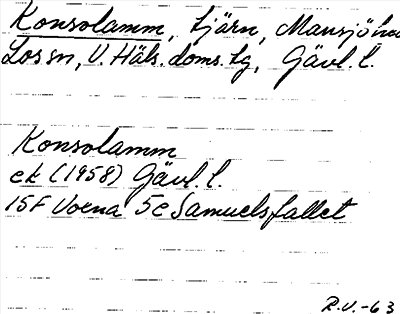 Konsolamm, tjärn, Mansjöhed
Los sn, V. Häls. doms. tg, Gävl. l.
Konsolamm
ek (1958) Gävl. l.
15F Voxna 5c Samuelsfallet
R.V.-63